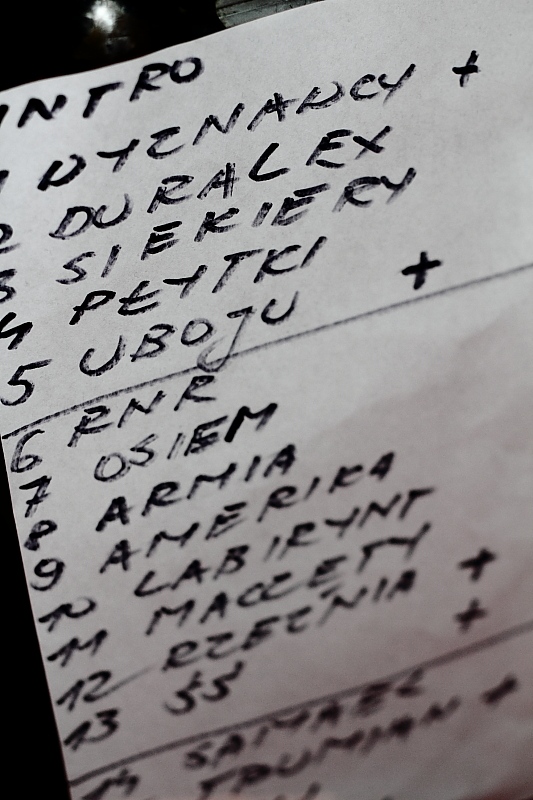 INTRO
1 WYZNAWCY +
2 DURALEX
3 SIEKIERY
4 PŁYTKI
5 UBOJU +
6 RNR
7 OSIEM
8 ARMIA
9 AMERIKA
10 LABIRYNT
11 MACZETY
12 RZEŹNIA +
13 +
14 SAMAEL
TRUMIAN +